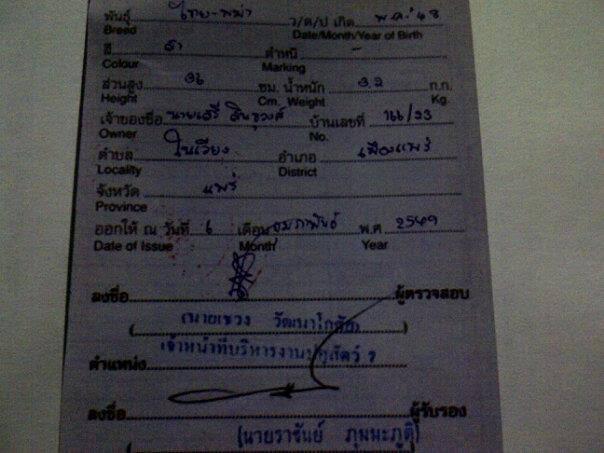 พันธุ์ ไทย-พม่า ว/ด/ป เกิด พ.ค.'48
Breed Date/Month/Year of Birth
สี ดำ ตำหนิ -
Colour Marking
ส่วนสูง ซม. น้ำหนัก 3,2 ก.ก.
Height Cm. Weight Kg.
เจ้าของชื่อ นายเสรี บ้านเลขที่ 166/33
Owner No.
ตำบล ในเวียง อำเภอ เมืองแพร่
Locality District
จังหวัด แพร่
Province
ออกให้ ณ วันที่ 6 เดือน กุมภาพันธ์ พ.ศ. 2549
Date of Issue Month Year
ลงชื่อ ผู้ตรวจสอบ
(นายเชวง วัฒนาโกศัย)
เจ้าหน้าที่บริหารงานปศุสัตว์ 7
ตำแหน่ง
ลงชื่อ ผู้รับรอง
(นายราชันย์ ภุมมะภูติ)